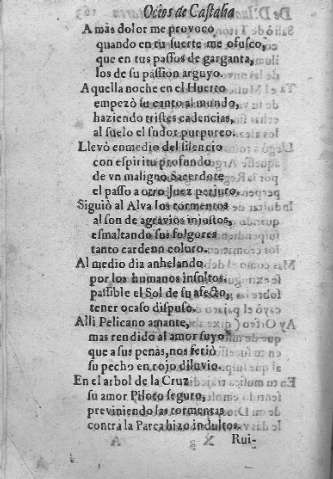 Ocios de Castalia
A màs dolor me provoco
quando en tu suerte me ofusco,
que en tus passos de garganta,
los de su passion arguyo.
Aquella noche en el Huerto
empezò su canto al mundo,
haziendo tristes cadencias,
al suelo el sudor purpureo.
Llevò enmedio del silencio
con espiritu profundo
de vn maligno Sacerdote
el passo a otro Juez perjuro.
Siguiò al Alva los tormentos
al son de agravios injustos,
esmaltando sus folgores
tanto cardeno coluro.
Al medio dia anhelando
por los humanos insultos,
passible el Sol de su afecto,
tener ocaso dispuso.
Alli Pelicano amante,
mas rendido al amor suyo
que a sus penas, nos feriò
su pecho en rojo diluvio.
En el arbol de la Cruz
su amor Piloto seguro,
previniendo las tormentas
contra la Parca hizo indultos.
Rui-